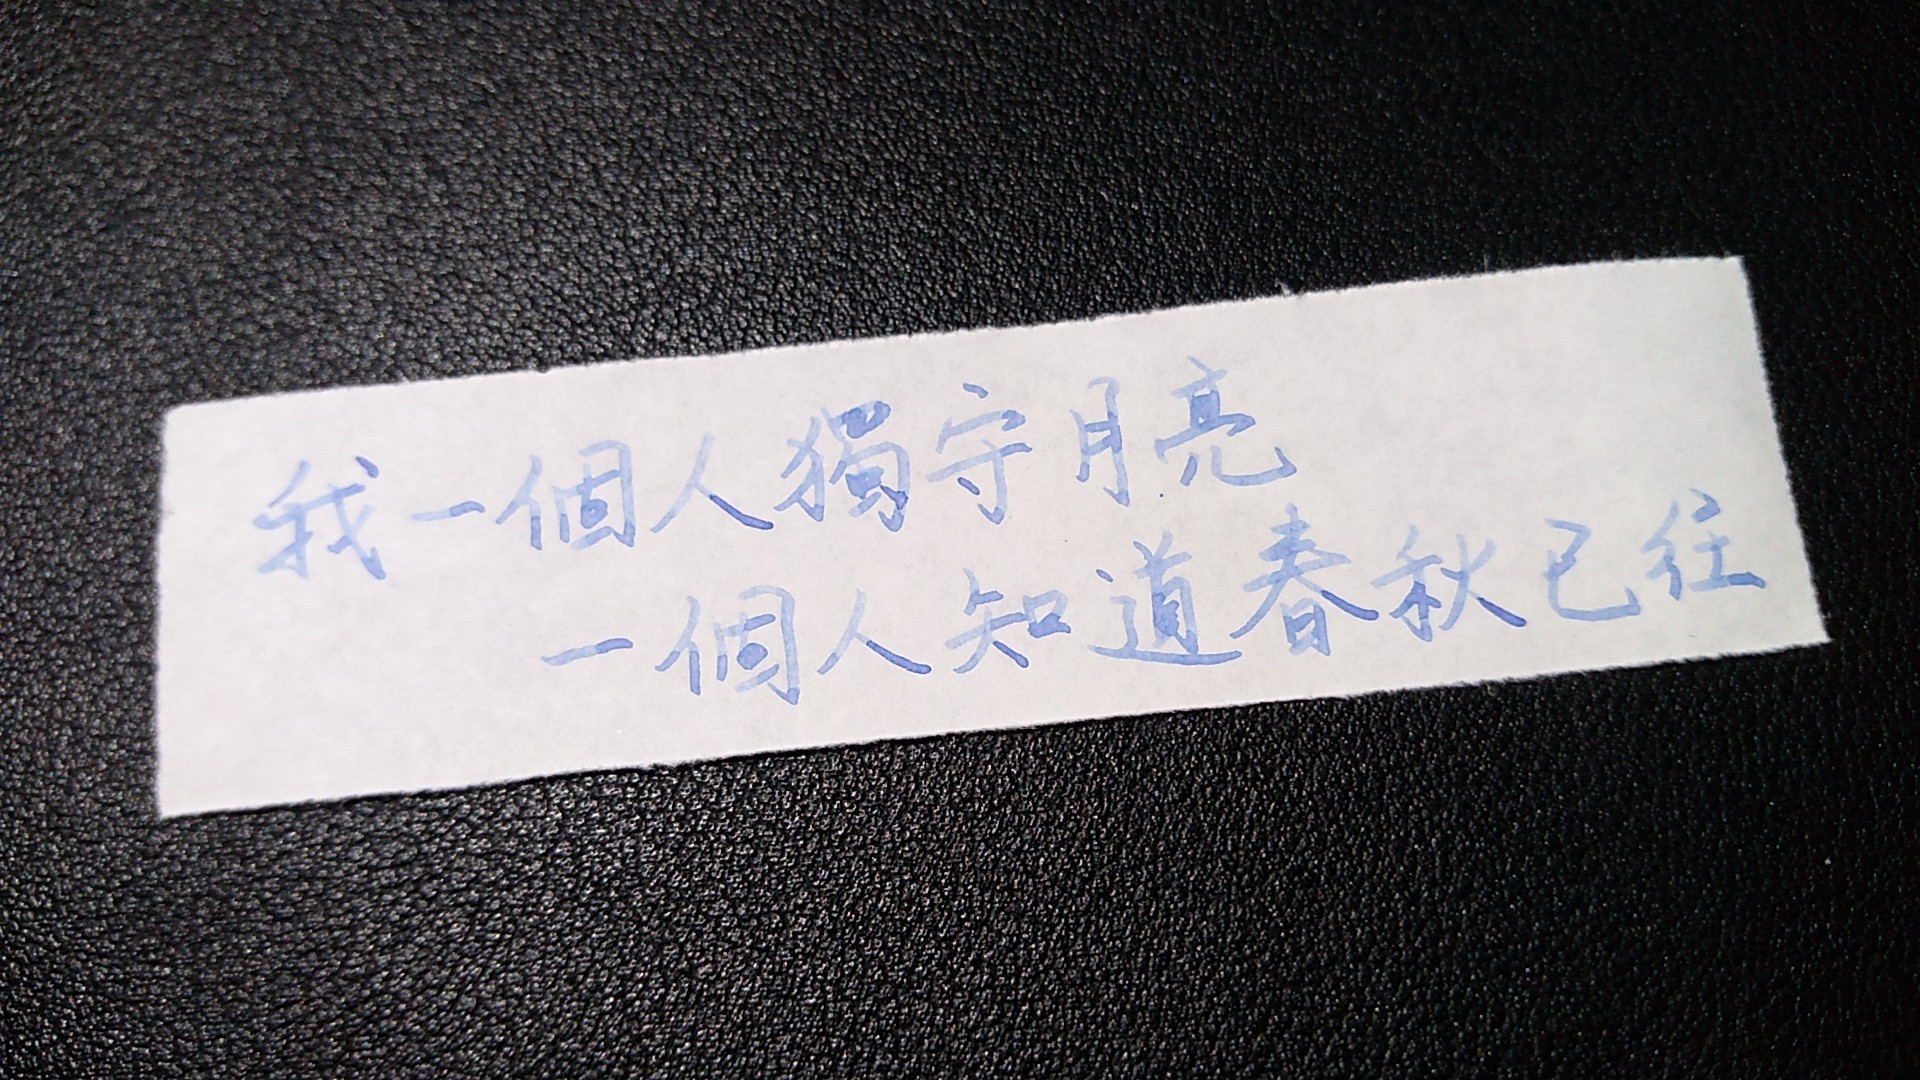 我一個人獨守月亮
一個人知道春秋已往